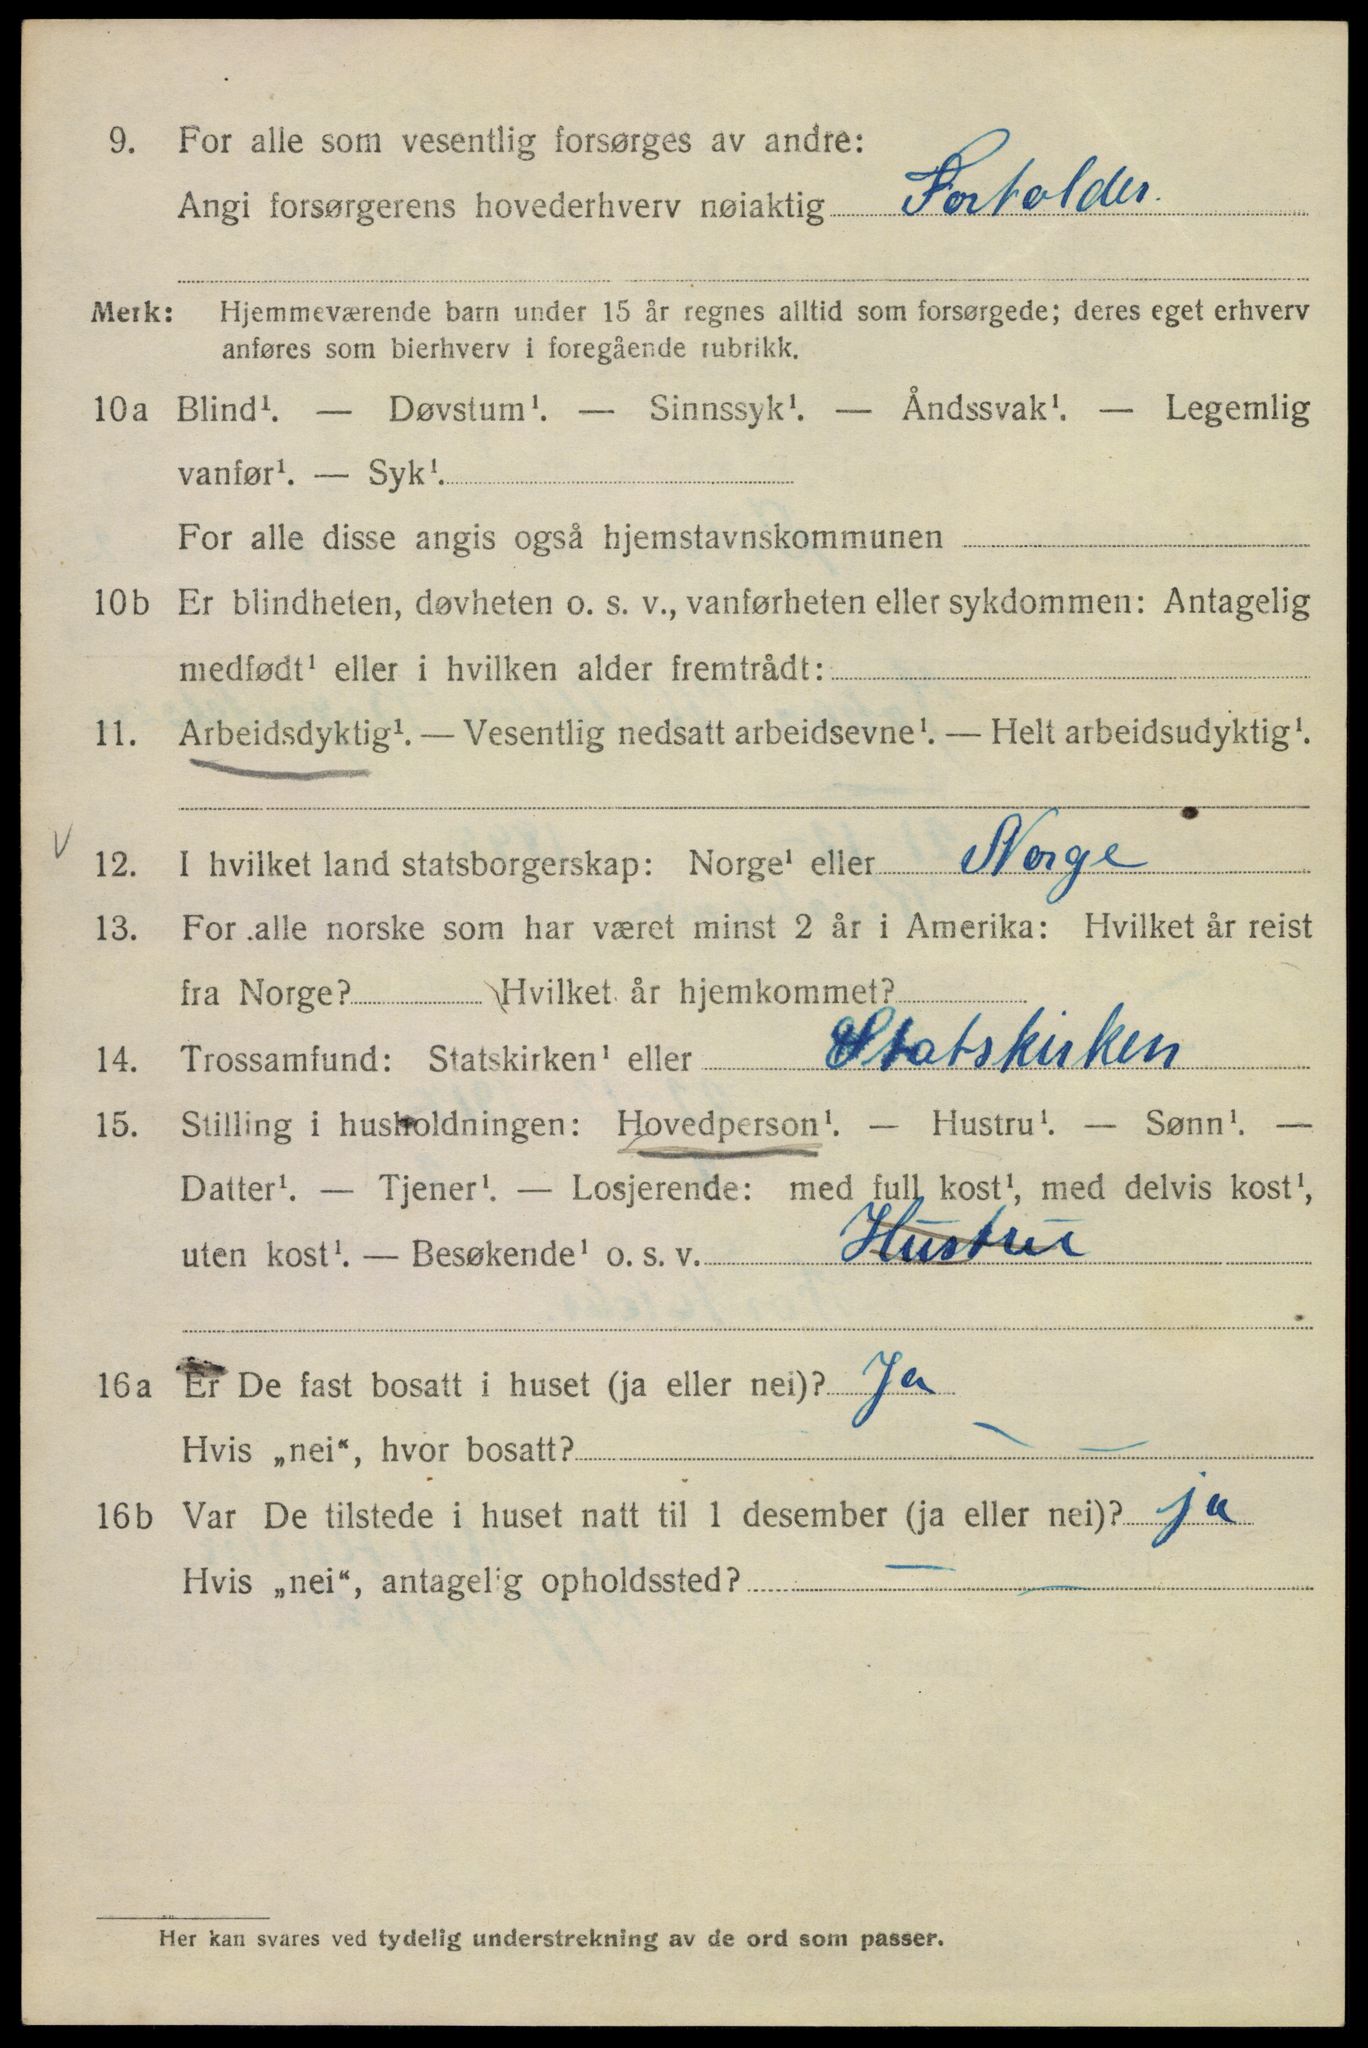 9. For alle som vesentlig forsørges av andre:
Angi forsørgerens hovederhverv nøiaktig Forholder.
Merk: Hjemmeværende barn under 15 år regnes alltid som forsørgede; deres eget erhverv
anføres som bierhverv i foregående rubrikk.
10a Blind¹. — Døvstum¹. — Sinnssyk¹. — Åndssvak¹. — Legemlig
vanfør¹. — Syk¹.
For alle disse angis også hjemstavnskommunen
10b Er blindheten, døvheten o. s. v., vanførheten eller sykdommen: Antagelig
medfødt¹ eller i hvilken alder fremtrådt:
11. Arbeidsdyktig¹. — Vesentlig nedsatt arbeidsevne¹. — Helt arbeidsudyktig¹.
V
12. I hvilket land statsborgerskap: Norge¹ eller Norge
13. For alle norske som har været minst 2 år i Amerika: Hvilket år reist
fra Norge? Hvilket år hjemkommet?
14. Trossamfund: Statskirken¹ eller Statskirken
15. Stilling i husholdningen: Hovedperson¹. — Hustru¹. — Sønn¹. —
Datter¹. — Tjener¹. — Losjerende: med full kost¹, med delvis kost¹,
uten kost¹. — Besøkende¹ o. s. v. Hustru
16a Er De fast bosatt i huset (ja eller nei)? Ja
Hvis „nei“, hvor bosatt? — —
16b Var De tilstede i huset natt til 1 desember (ja eller nei)? ja
Hvis „nei“, antagelig opholdssted? — —
Her kan svares ved tydelig understrekning av de ord som passer.